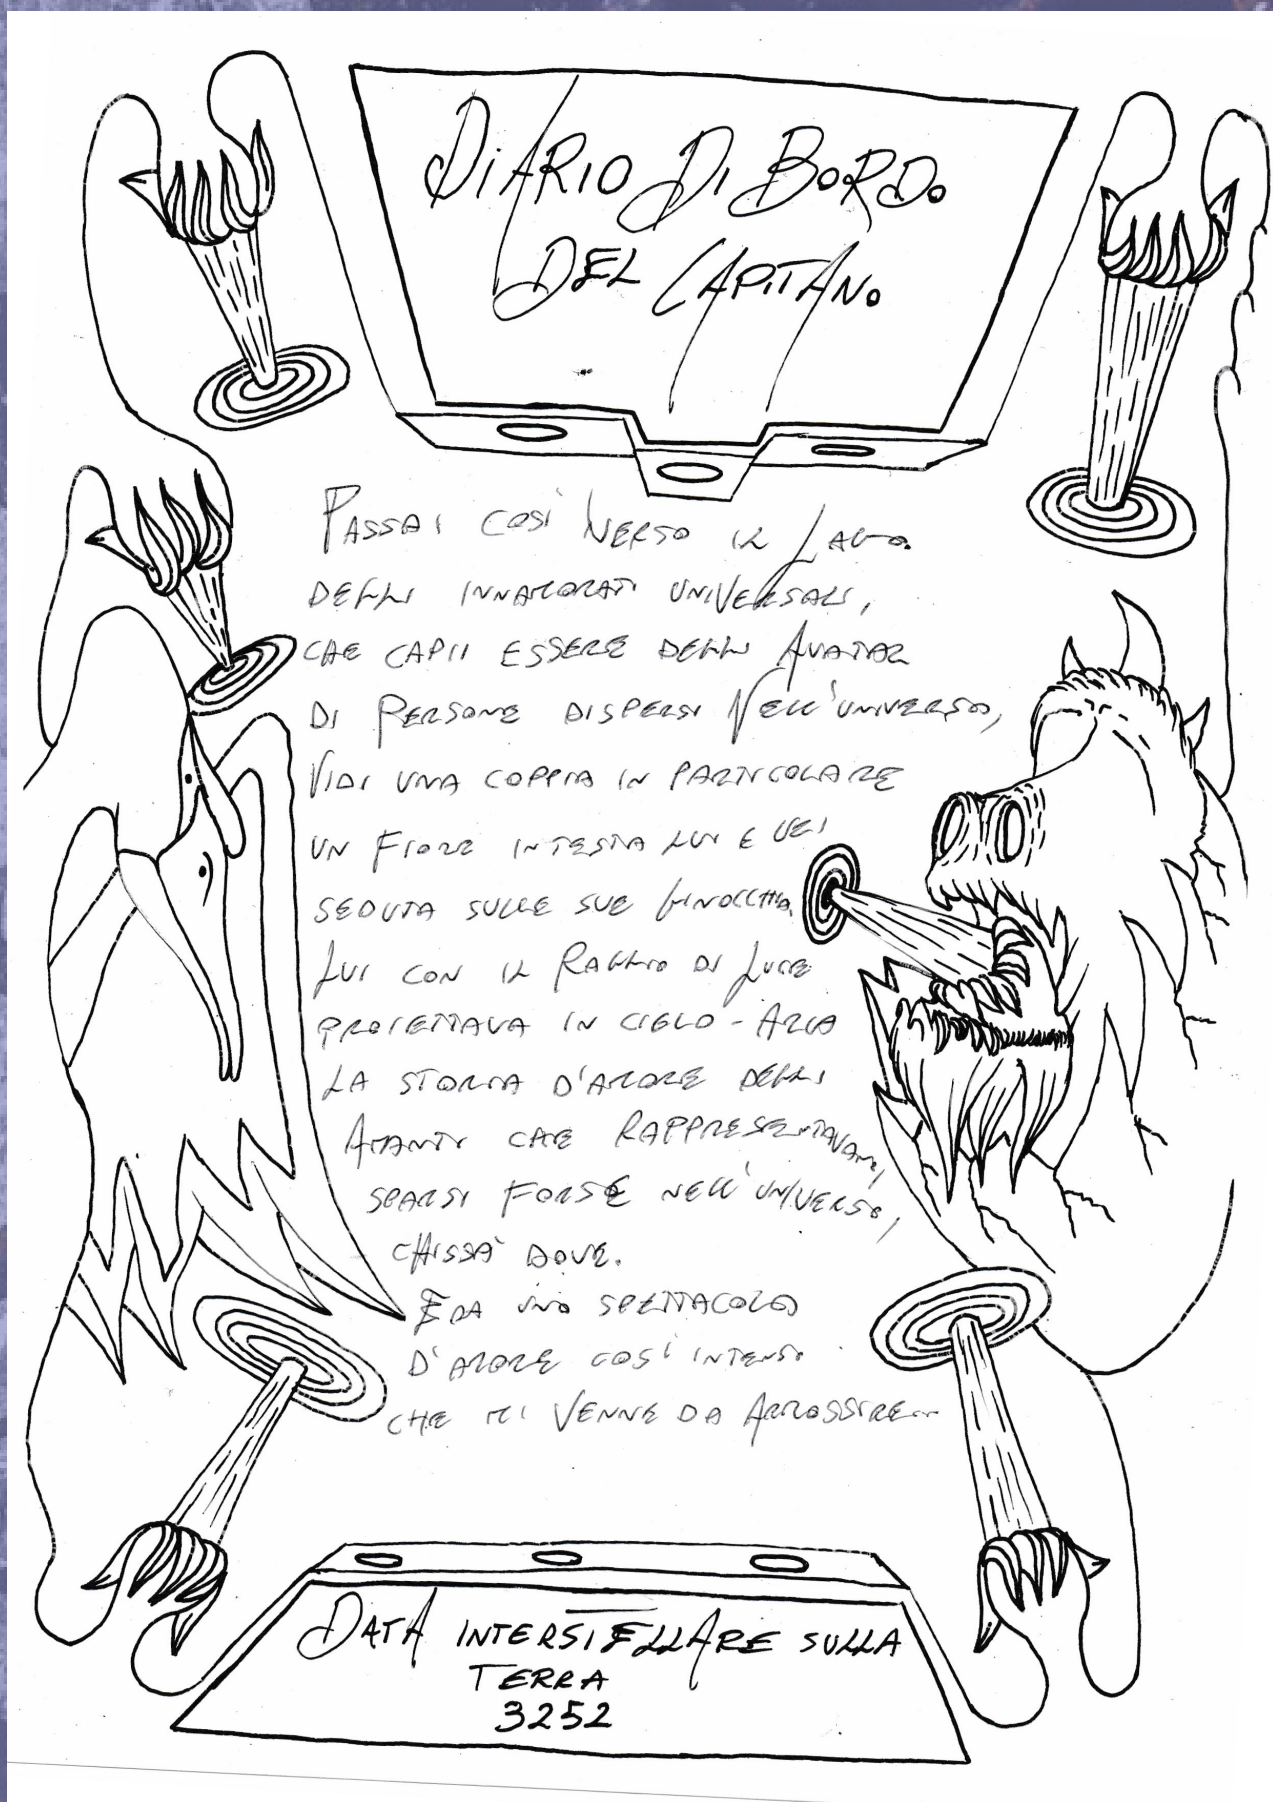 DIARIO DI BORDO
DEL CAPITANO
PASSAI COSÌ VERSO IL LAGO
DEGLI INNAMORATI UNIVERSALI,
CHE CAPII ESSERE DEGLI AVATAR
DI PERSONE DISPERSI NELL'UNIVERSO,
VIDI UNA COPPIA IN PARTICOLARE
UN FIORE IN TESTA LUI E LEI
SEDUTA SULLE SUE GINOCCHIA.
LUI CON IL RAGGIO DI LUCE
PROIETTAVA IN CIELO - ARIA
LA STORIA D'AMORE DEGLI
AMANTI CHE RAPPRESENTAVANO,
SPARSI FORSE NELL'UNIVERSO,
CHISSÀ DOVE.
ERA UNO SPETTACOLO
D'AMORE COSÌ INTENSO
CHE MI VENNE DA ARROSSIRE...
DATA INTERSTELLARE SULLA
TERRA
3252